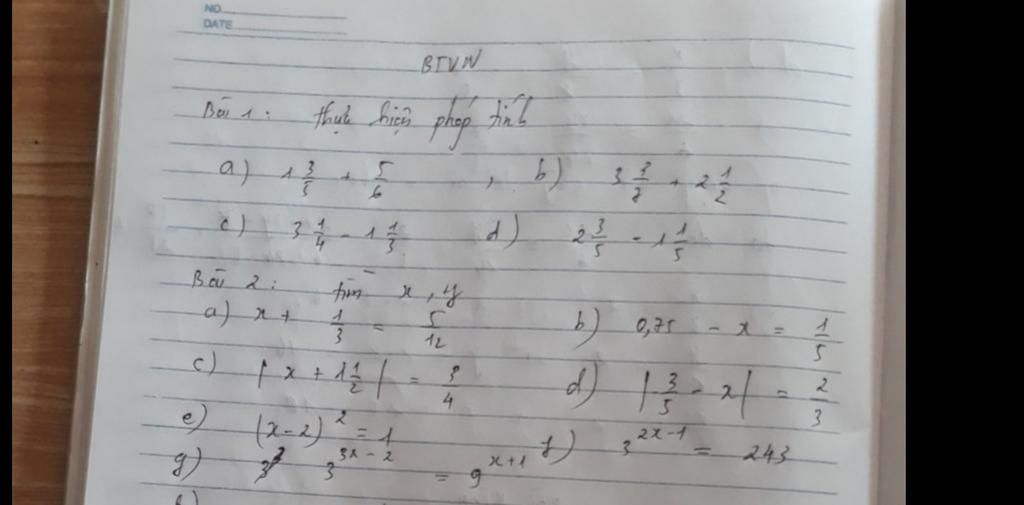 NO.
DATE
BTVN
Bài 1: thực hiện phép tính
a) 1 3/5 + 5/6 , b) 3 3/7 + 2 1/2
c) 3 1/4 - 1 1/3 d) 2 3/5 - 1 1/5
Bài 2: tìm x, y
a) x + 1/3 = 5/12 b) 0,75 - x = 1/5
c) |x + 1 1/2| = 3/4 d) |3/5 - x| = 2/3
e) (x-2)^2 = 1 f) 3^{2x-1} = 243
g) 3^{3x-2} = 9^{x+1}